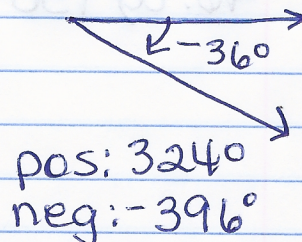 -36°
pos: 324°
neg: -396°